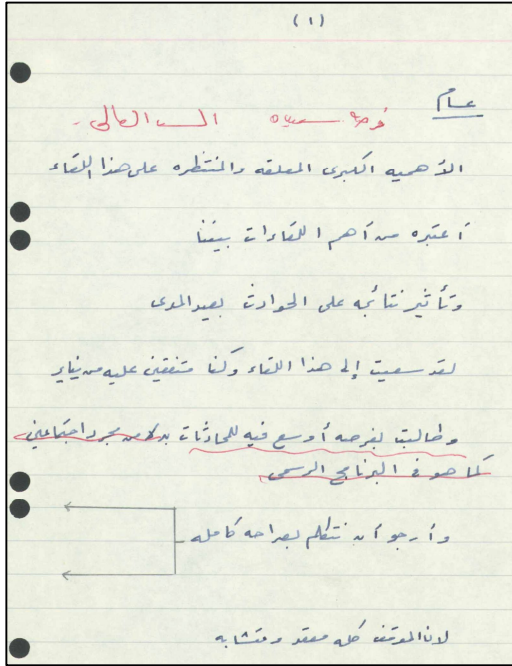 (١)
عام
فرصة سعيده السد العالى -
الأهميه الكبرى المعلقه والمنتظره على هذا اللقاء
أعتبره من أهم اللقاءات بيننا
وتأثير نتائجه على الحوادث بعيد المدى
لقد سعيت إلى هذا اللقاء وكنا متفقين عليه من يناير
وطالبت بفرصه أوسع فيه للمحادثات بدلا من مجرد اجتماعين
كما هو فى البرنامج الرسمى
وأرجو أن نتكلم بصراحه كامله
لان الموقف كله معقد ومتشابه